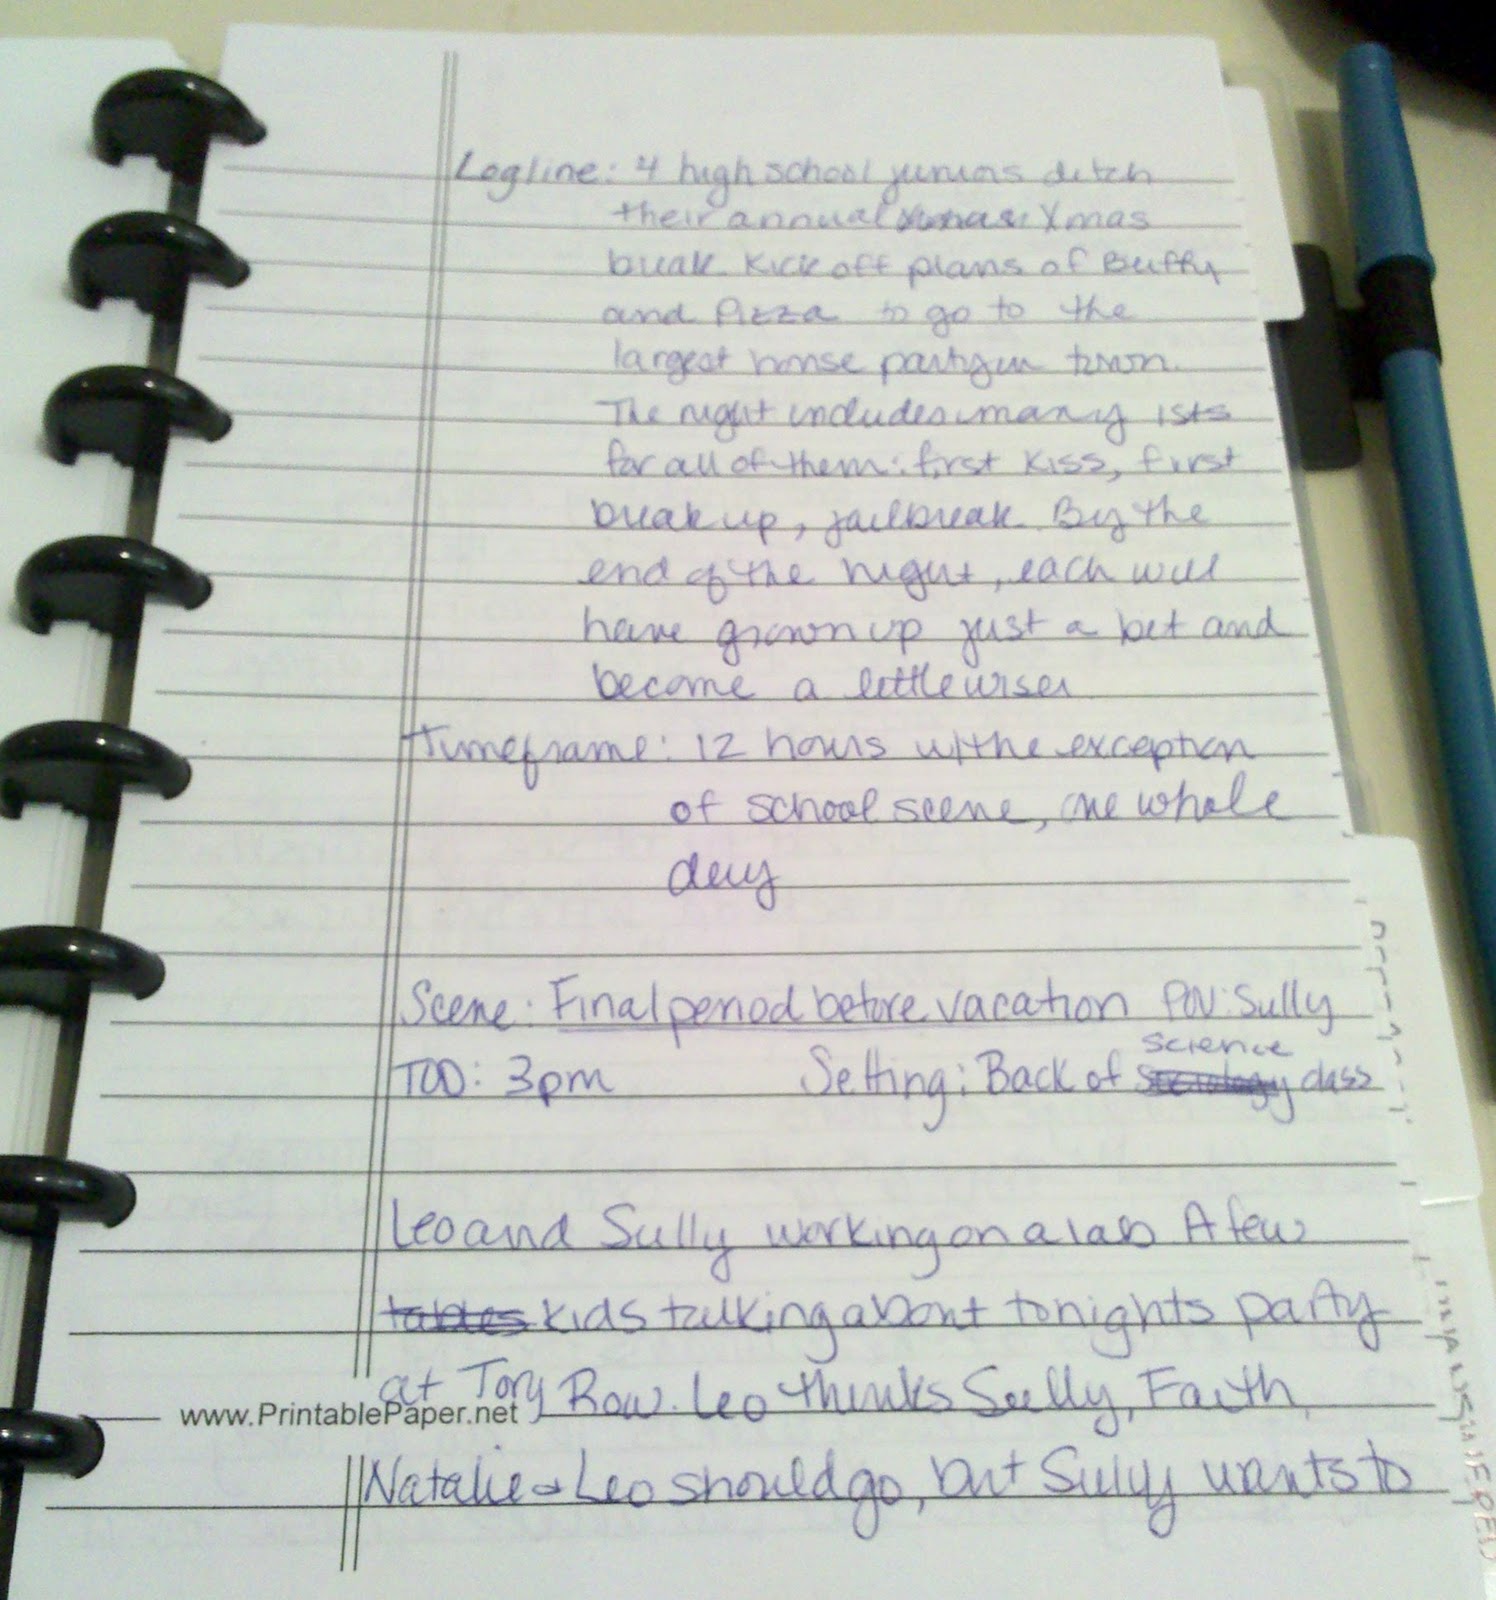 Logline: 4 high school juniors ditch
their annual Xmas
break kick off plans of Buffy
and Pizza to go to the
largest house party in town.
The night includes many 1sts
for all of them: first kiss, first
break up, jailbreak. By the
end of the night, each will
have grown up just a bit and
become a little wiser.
Timeframe: 12 hours w/the exception
of school scene, one whole
day
Scene: Final period before vacation POV: Sully
science
TOD: 3pm Setting: Back of class
Leo and Sully working on a lab. A few
tables kids talking about tonights party
at Tory Row. Leo thinks Sully, Faith,
www.PrintablePaper.net
Natalie & Leo should go, but Sully wants to